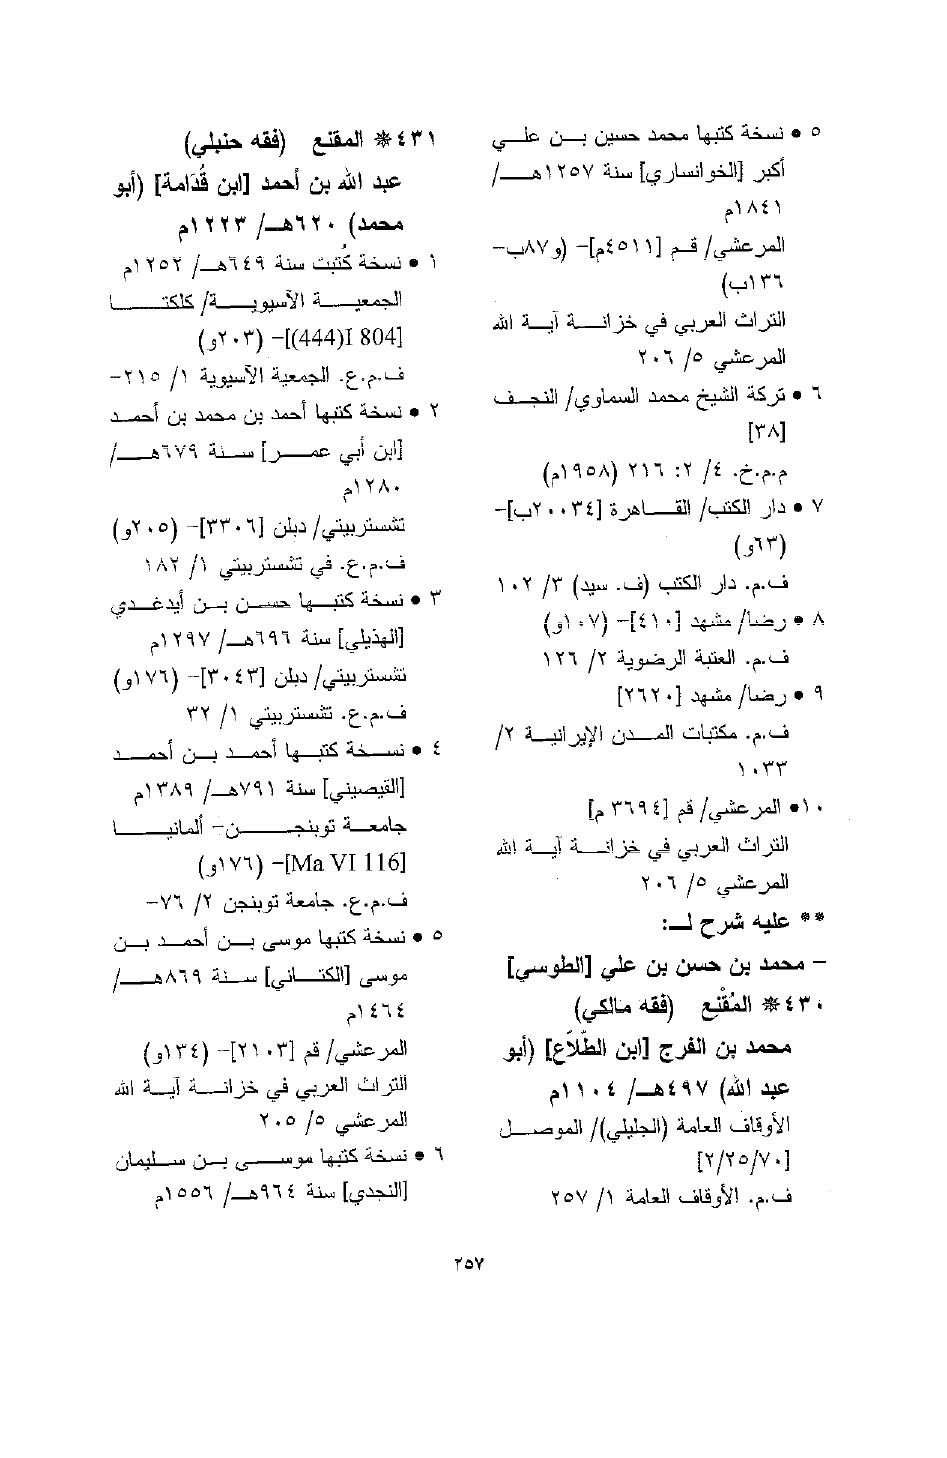 ٥ • نسخة كتبها محمد حسين بن علي
أكبر [الخوانساري] سنة ١٢٥٧هـ/
١٨٤١م
المرعشي/ قم [٤٥١١م]- (و٨٧ب-
١٣٦ب)
التراث العربي في خزانة آية الله
المرعشي ٥/ ٢٠٦
٦ • تركة الشيخ محمد السماوي/ النجف
[٣٨]
م.م.خ. ٤/ ٢: ٢١٦ (١٩٥٨م)
٧ • دار الكتب/ القاهرة [٢٠٠٣٤ب]-
(٦٣و)
ف.م. دار الكتب (ف. سيد) ٣/ ١٠٢
٨ • رضا/ مشهد [٤١٠]- (١٠٧و)
ف.م. العتبة الرضوية ٢/ ١٢٦
٩ • رضا/ مشهد [٢٦٢٠]
ف.م. مكتبات المدن الإيرانية ٢/
١٠٣٣
١٠• المرعشي/ قم [٣٦٩٤ م]
التراث العربي في خزانة آية الله
المرعشي ٥/ ٢٠٦
** عليه شرح لـ:
– محمد بن حسن بن علي [الطوسي]
٤٣٠* المُقْنِع (فقه مالكي)
محمد بن الفرج [ابن الطّلّاع] (أبو
عبد الله) ٤٩٧هـ/ ١١٠٤م
الأوقاف العامة (الجليلي)/ الموصل
[٢/٢٥/٧٠]
ف.م. الأوقاف العامة ١/ ٢٥٧
٤٣١* المقنع (فقه حنبلي)
عبد الله بن أحمد [ابن قُدَامة] (أبو
محمد) ٦٢٠هـ/ ١٢٢٣م
١ • نسخة كُتبت سنة ٦٤٩هـ/ ١٢٥٢م
الجمعية الآسيوية/ كلكتا
[444)I 804)]- (٢٠٣و)
ف.م.ع. الجمعية الآسيوية ١/ ٢١٥-
٢ • نسخة كتبها أحمد بن محمد بن أحمد
[ابن أبي عمر] سنة ٦٧٩هـ/
١٢٨٠م
تشستربيتي/ دبلن [٣٣٠٦]- (٢٠٥و)
ف.م.ع. في تشستربيتي ١/ ١٨٢
٣ • نسخة كتبها حسن بن أيدغدي
[الهذيلي] سنة ٦٩٦هـ/ ١٢٩٧م
تشستربيتي/ دبلن [٣٠٤٣]- (١٧٦و)
ف.م.ع. تشستربيتي ١/ ٣٢
٤ • نسخة كتبها أحمد بن أحمد
[القيصيني] سنة ٧٩١هـ/ ١٣٨٩م
جامعة توبنجن- ألمانيا
[Ma VI 116]- (١٧٦و)
ف.م.ع. جامعة توبنجن ٢/ ٧٦-
٥ • نسخة كتبها موسى بن أحمد بن
موسى [الكتاني] سنة ٨٦٩هـ/
١٤٦٤م
المرعشي/ قم [٢١٠٣]- (١٣٤و)
التراث العربي في خزانة آية الله
المرعشي ٥/ ٢٠٥
٦ • نسخة كتبها موسى بن سليمان
[النجدي] سنة ٩٦٤هـ/ ١٥٥٦م
٢٥٧